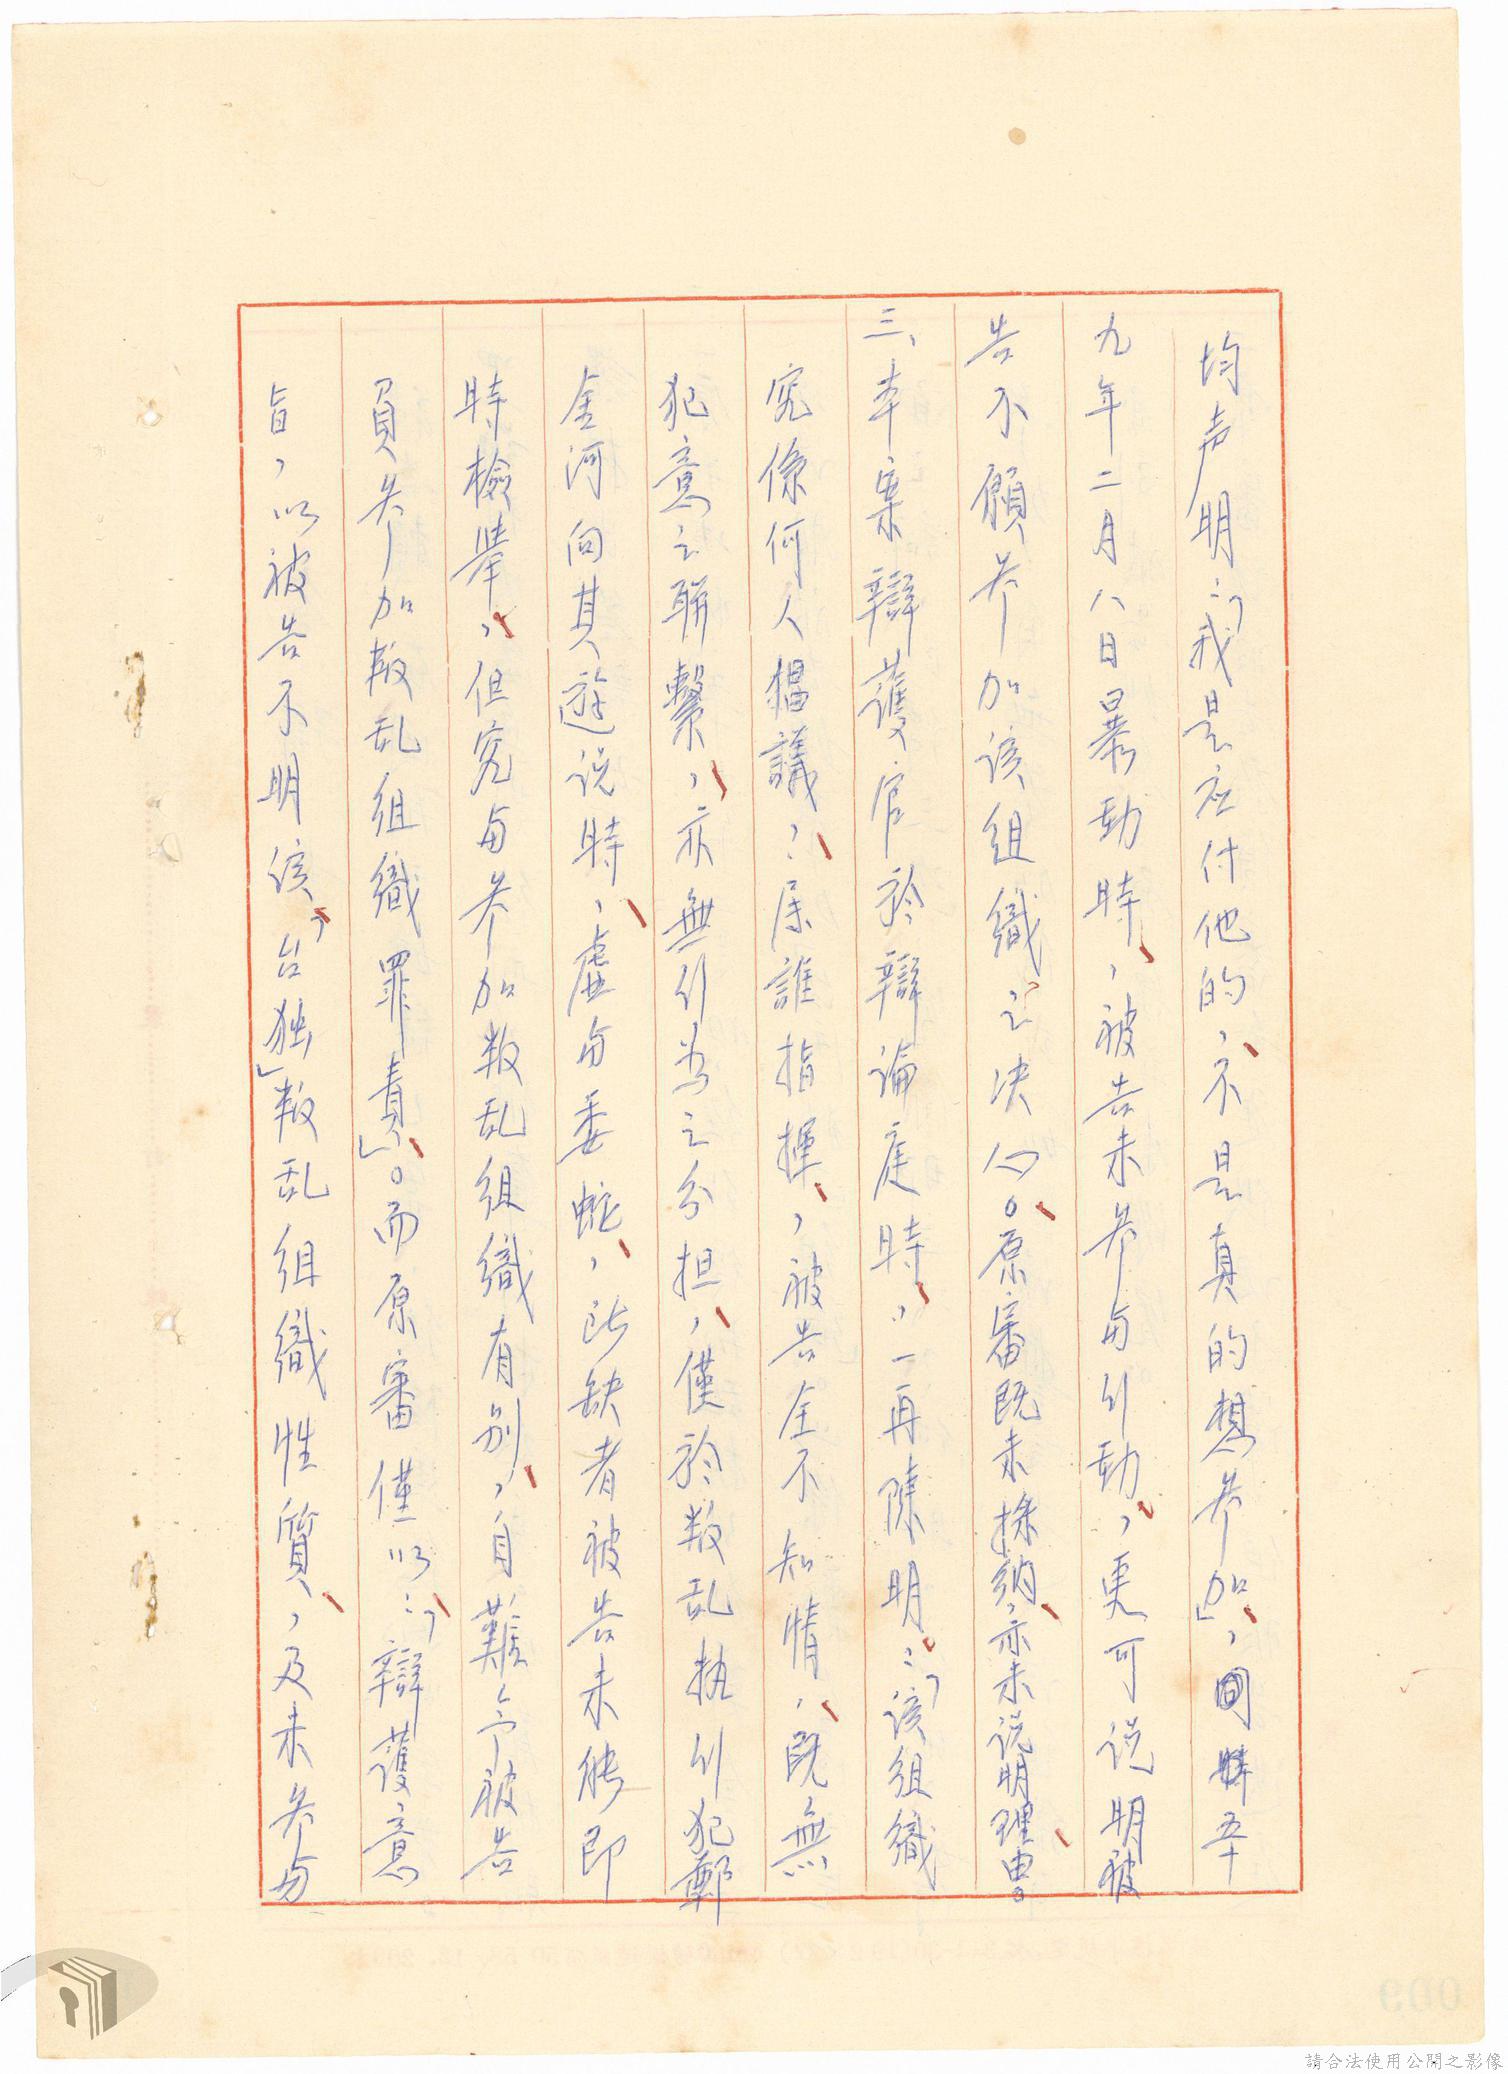 均声明：「我是应付他的，不是真的想参加」，回晔五
九年二月八日暴動時，被告未参与行動，更可说明被
告不願参加该组織之决心。原審既未採納，亦未说明理由。
三、本案辯護官於辯論庭時，一再陳明：「该组織
究係何人猖議？屈誰指揮，被告全不知情，既無
犯意之聯繫，亦無行为之分担，僅於叛乱执行犯鄭
金河向其遊说時，虚与委蛇，所缺者被告未能即
時檢舉，但究与参加叛乱组織有别，自難令被告
負参加叛乱组織罪責」。而原審僅以：「辯護意
旨，以被告不明该「台独」叛乱组織性質，及未参与
009
請合法使用公開之影像